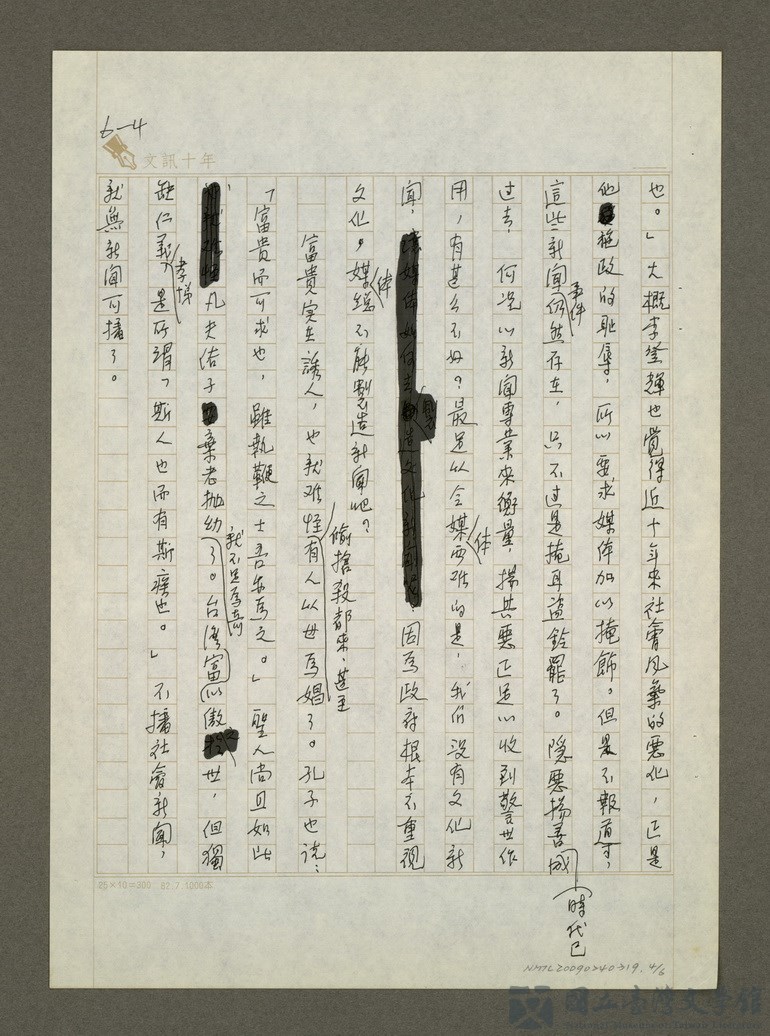 6-4
文訊十年
也。」大概李登輝也覺得近十年來社會風氣的惡化，正是
他施政的耻辱，所以要求媒体加以掩飾。但是不報導，
這些新聞事件仍然存在，只不过是掩耳盜鈴罷了。隱惡揚善時代已成
过去，何況以新聞專業來衡量，揚其惡正足以收到警世作
用，有甚么不好？最足以令媒体為难的是，我们沒有文化新
聞，因為政府根本不重視
文化。媒体総不能製造新聞吧？
富貴实在誘人，也就难怪有人偷搶殺都來，甚至以母為娼了。孔子也说：
「富貴而可求也，雖執鞭之士吾亦為之。」聖人尚且如此
凡夫俗子棄老抛幼就不足為奇了。台湾富以傲世，但獨
缺仁義、孝悌，是所謂「斯人也而有斯疾也。」不播社會新聞，
就無新聞可播了。
25×10=300 82.7.1000本
NMTL20090240319.4/6
國立臺灣文學館